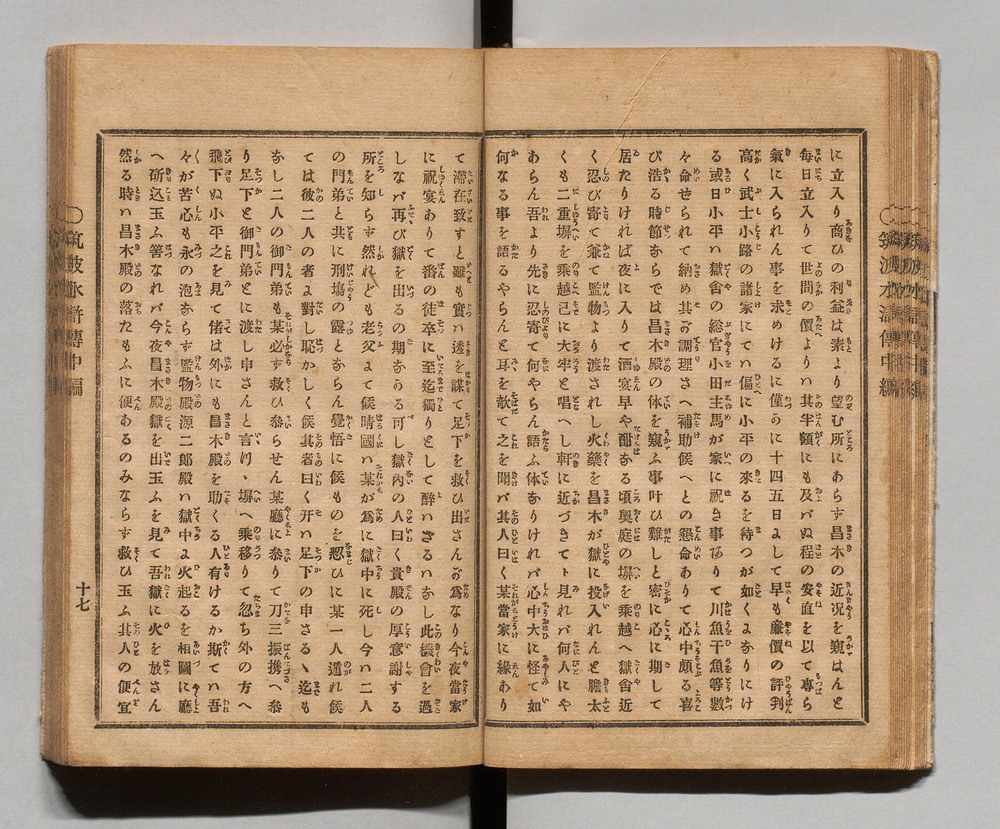 に立入り商ひの利益は素より望む所にあらす昌木の近况を窺はんと
毎日立入りて世間の價よりハ其半額にも及バぬ程の安直を以て專ら
氣に入られん事を求めけるに僅うに十四五日よして早も廉價の評判
高く武士小路の諸家にてハ偏に小平の來るを待つが如くよなりにけ
る或日小平ハ獄舍の総官小田主馬が家に祝き事ありて川魚干魚等數
々命せられて納め其お調理さへ補助候へとの懇命ありて心中頗る喜
び浩る時節ならでは昌木殿の体を窺ふ事叶ひ難しと密に心に期して
居たりければ夜に入りて酒宴早や酣なる頃奧庭の塀を乘越へ獄舍近
く忍び寄て兼て監物より渡されし火藥を昌木が獄に投入れんと膽太
くも二重塀を乘越己に大牢と唱へし軒に近づきてト見れバ何人にや
あらん吾より先に忍寄て何やらん語ふ体なりけれバ心中大に怪て如
何なる事を語るやらんと耳を欹て之を聞バ其人曰く某當家に緣あり
て滯在致すと雖も實ハ透を謀て足下を救ひ出さんお爲なり今夜當家
に祝宴ありて番の徒卒に至迄獨りとして醉ハざるハなし此機會を過
しなバ再び獄を出るの期なかる可し獄內の人曰く貴殿の厚意謝する
所を知らす然れども老父よて候晴國ハ某が爲に獄中に死し今ハ二人
の門弟と共に刑塲の露とならん覺悟に候ものを愬ひに某一人遁れ候
ては彼二人の者よ對し恥かしく候其者曰く开ハ足下の申さるゝ迄も
なし二人の御門弟も某必す救ひ參らせん某廳に參りて刀三振携へ參
り足下と御門弟とに渡し申さんと言け、塀へ乘移りて忽ち外の方へ
飛下ぬ小平之を見て偖は外にも昌木殿を助くる人有けるか斯てハ吾
々が苦心も永の泡ならす監物殿源二郎殿ハ獄中よ火起るを相圖に廳
へ斫込玉ふ筈なれバ今夜昌木殿獄を出玉ふを見て吾獄に火を放さん
然る時ハ昌木殿の落たもふに便あるのみならす救ひ玉ふ其人の便宜
筑波水滸傳中編
十七
筑波水滸傳中編